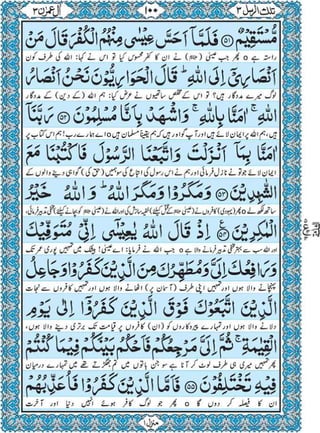 تلك الرسل ٣ ١٠٠ آل عمران ٣
مُّسْتَقِيْمٌ ﴿۵۱﴾ فَلَمَّاۤ اَحَسَّ عِيْسٰى مِنْهُمُ الْكُفْرَ قَالَ مَنْ
راستہ ہے ○ پھر جب عیسیٰ نے ان کا کفر محسوس کیا تو اس نے کہا: اللہ کی طرف کون
اَنْصَارِيْۤ اِلَى اللّٰهِ ؕ قَالَ الْحَوَارِيُّوْنَ نَحْنُ اَنْصَارُ
لوگ میرے مددگار ہیں؟ تو اس کے مخلص ساتھیوں نے عرض کیا: ہم اللہ (کے دین) کے مددگار
اللّٰهِ ۚ اٰمَنَّا بِاللّٰهِ ۚ وَ اشْهَدْ بِاَنَّا مُسْلِمُوْنَ ﴿۵۲﴾ رَبَّنَاۤ
ہیں، ہم اللہ پر ایمان لائے ہیں اور آپ گواہ رہیں کہ ہم یقیناً مسلمان ہیں ○ اے ہمارے رب! ہم اس کتاب پر
اٰمَنَّا بِمَاۤ اَنْزَلْتَ وَ اتَّبَعْنَا الرَّسُوْلَ فَاكْتُبْنَا مَعَ
ایمان لائے جو تو نے نازل فرمائی اور ہم نے اس رسول کی اتباع کی سو ہمیں (حق کی) گواہی دینے والوں کے
الشّٰهِدِيْنَ ﴿۵۳﴾ وَ مَكَرُوْا وَ مَكَرَ اللّٰهُ ؕ وَ اللّٰهُ خَيْرُ
ساتھ لکھ لے ○
الْمٰكِرِيْنَ ﴿۵۴﴾ اِذْ قَالَ اللّٰهُ يٰعِيْسٰۤى اِنِّيْ مُتَوَفِّيْكَ
اور اللہ سب سے بہتر مخفی تدبیر فرمانے والا ہے ○ جب اللہ نے فرمایا: اے عیسیٰ! بیشک میں تمہیں پوری عمر تک
وَ رَافِعُكَ اِلَيَّ وَ مُطَهِّرُكَ مِنَ الَّذِيْنَ كَفَرُوْا وَ جَاعِلُ
پہنچانے والا ہوں اور تمہیں اپنی طرف (آسمان پر) اٹھانے والا ہوں اور تمہیں کافروں سے نجات
الَّذِيْنَ اتَّبَعُوْكَ فَوْقَ الَّذِيْنَ كَفَرُوْۤا اِلٰى يَوْمِ
دلانے والا ہوں اور تمہارے پیروکاروں کو (ان) کافروں پر قیامت تک برتری دینے والا ہوں،
الْقِيٰمَةِ ۚ ثُمَّ اِلَيَّ مَرْجِعُكُمْ فَاَحْكُمُ بَيْنَكُمْ فِيْمَا كُنْتُمْ
پھر تمہیں میری ہی طرف لوٹ کر آنا ہے سو جن باتوں میں تم جھگڑتے تھے میں تمہارے درمیان
فِيْهِ تَخْتَلِفُوْنَ ﴿۵۵﴾ فَاَمَّا الَّذِيْنَ كَفَرُوْا فَاُعَذِّبُهُمْ
ان کا فیصلہ کر دوں گا ○ پھر جو لوگ کافر ہوئے انہیں دنیا اور آخرت
منزل ١